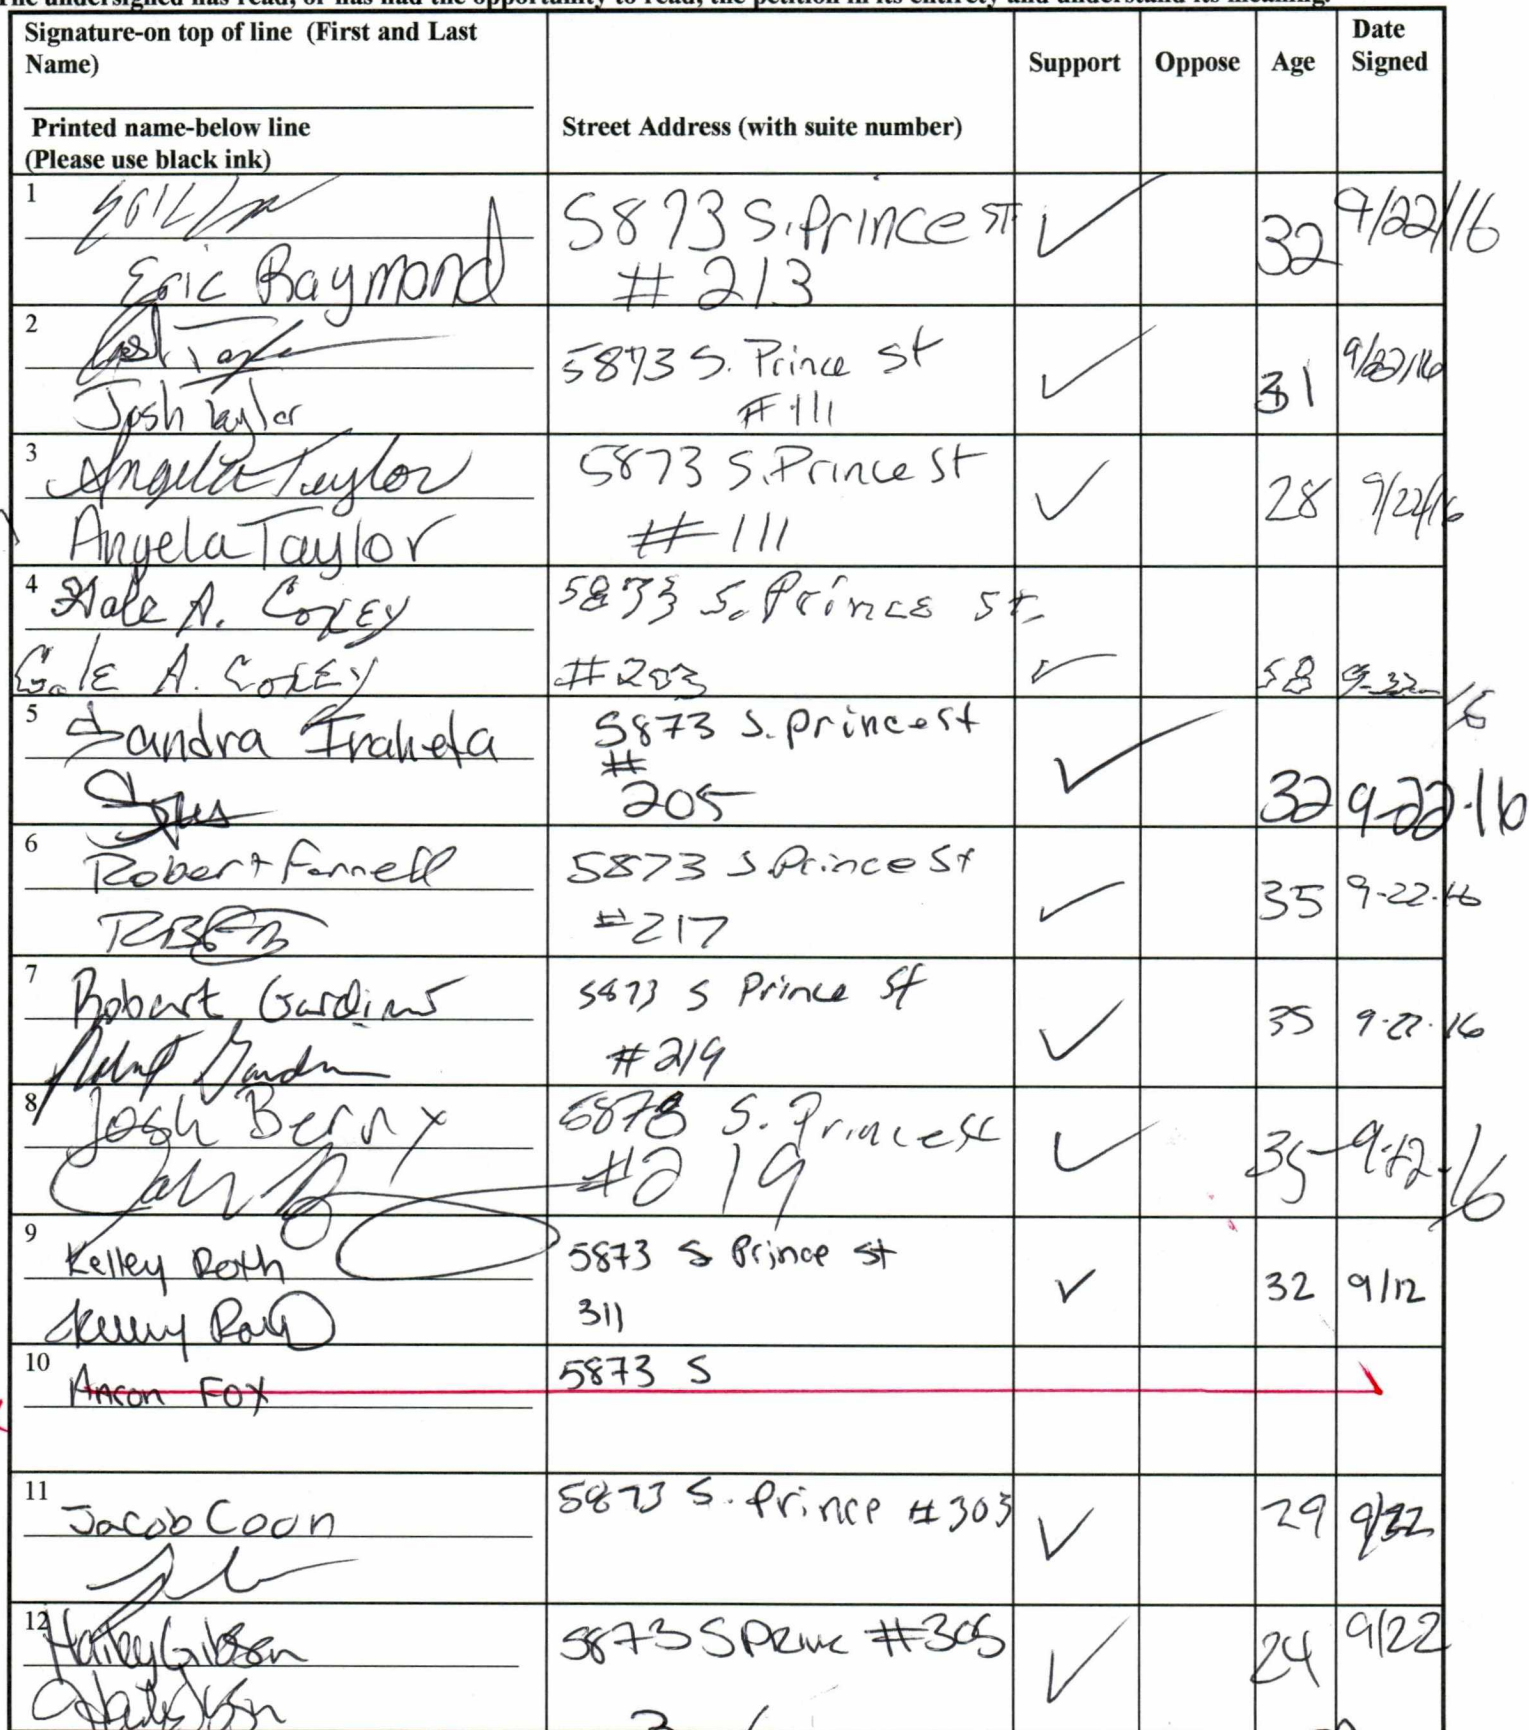 The undersigned has read, or has had the opportunity to read, the petition in its entirety and understand its meaning.
Signature-on top of line (First and Last Name)
Printed name-below line
(Please use black ink)
Street Address (with suite number)
Support
Oppose
Age
Date Signed
1
Eric Raymond
5873 S. Prince St
# 213
32
9/22/16
2
Josh Taylor
Josh Taylor
5873 S. Prince st
#111
31
9/22/16
3
Angela Taylor
Angela Taylor
5873 S. Prince St
#111
28
9/22/16
4
Gale A. Coxey
Gale A. Coxey
5873 S. Prince st.
#203
58
9-22-16
5
Sandra Iraheta
5873 S. prince st
#
205
32
9-22-16
6
Robert Fennell
5873 S. Prince St
#217
35
9-22-16
7
Robert
5873 S Prince St
#219
35
9-22-16
8
Josh Berry
5873 S. Prince st
#219
35
9-22-16
9
Kelley Roth
5873 S Prince st
311
32
9/12
10
Fox
5873 S
11
Jacob Coon
5873 S. Prince #303
29
9/22
12
Hailey Gibson
5873 S #305
24
9/22